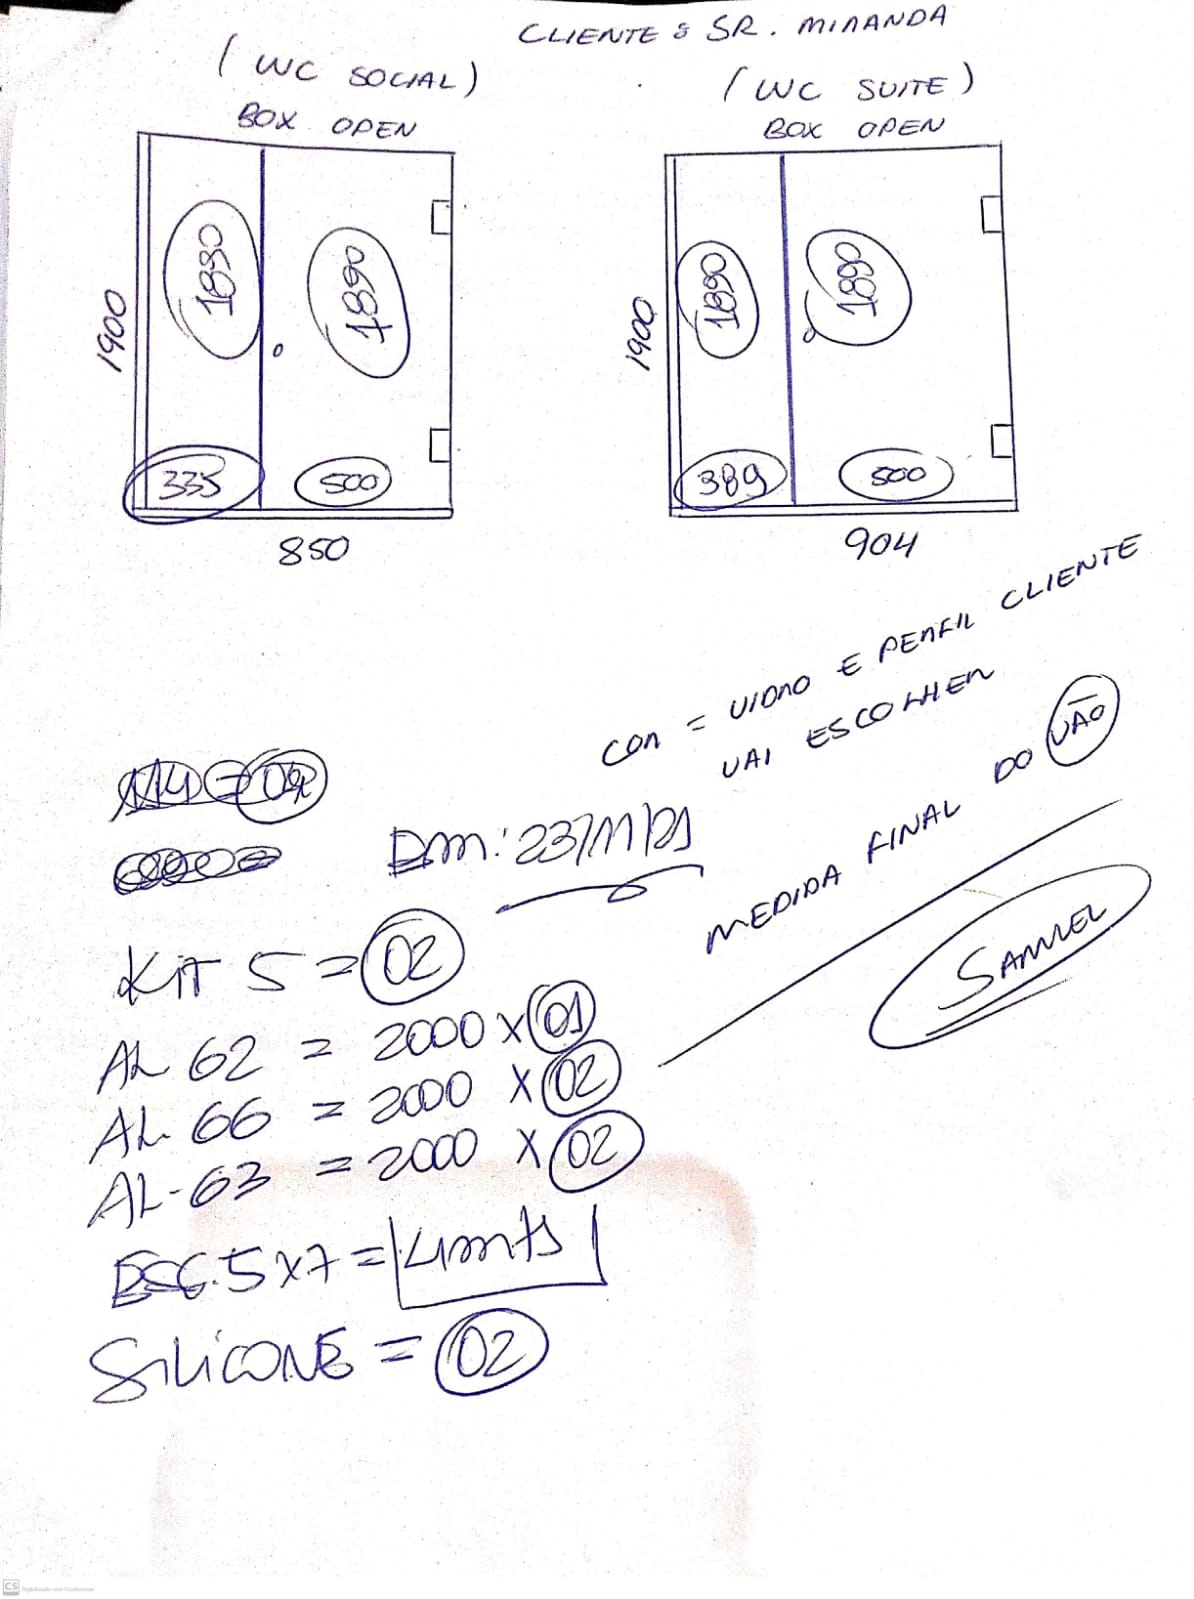 CLIENTE : SR. MIRANDA
(WC SOCIAL)
BOX OPEN
1900
1890
1890
335
500
850
(WC SUITE)
BOX OPEN
1900
1890
1890
389
500
904
COR = VIDRO E PERFIL CLIENTE
VAI ESCOLHER
MEDIDA FINAL DO VÃO
SAMUEL
KIT 5 = 02
AL 62 = 2000 X 01
AL. 66 = 2000 X 02
AL-63 = 2000 X 02
ESC. 5 X 7 = 4 mts
SILICONE = 02
CS Digitalizado com CamScanner